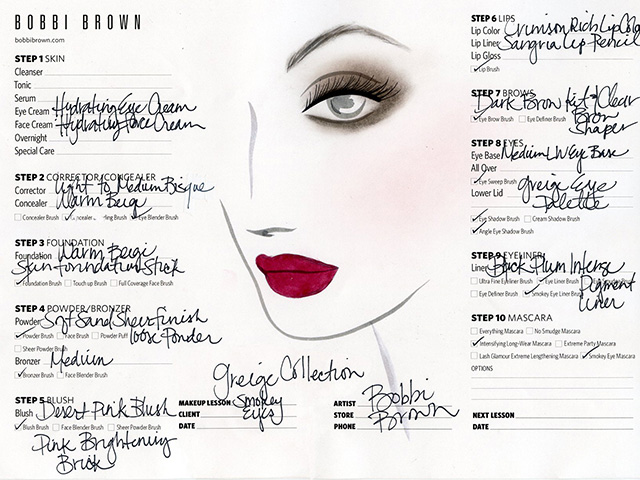 BOBBI BROWN
bobbibrown.com
STEP 1 SKIN
Cleanser
Tonic
Serum
Eye Cream Hydrating Eye Cream
Face Cream Hydrating Face Cream
Overnight
Special Care
STEP 2 CORRECTOR/CONCEALER
Corrector Light to Medium Bisque
Concealer Warm Beige
Concealer Brush Blending Brush Eye Blender Brush
STEP 3 FOUNDATION
Foundation Warm Beige
Skin Foundation Stick
Foundation Brush Touch up Brush Full Coverage Face Brush
STEP 4 POWDER/BRONZER
Powder Soft Sand Sheer Finish
Loose Powder
Powder Brush Face Brush Powder Puff
Sheer Powder Brush
Bronzer Medium
Bronzer Brush Face Blender Brush
STEP 5 BLUSH
Blush Desert Pink Blush
Blush Brush Face Blender Brush Sheer Powder Brush
Pink Brightening
Brick
Greige Collection
MAKEUP LESSON Smokey
CLIENT Eyes
DATE
ARTIST Bobbi
STORE Brown
PHONE
STEP 6 LIPS
Lip Color Crimson Rich Lip Color
Lip Liner Sangria Lip Pencil
Lip Gloss
Lip Brush
STEP 7 BROWS
Dark Brow Kit & Clear
Brow
Shaper
Eye Brow Brush Eye Definer Brush
STEP 8 EYES
Eye Base Medium LW Eye Base
All Over
Eye Sweep Brush
Lower Lid Greige Eye
Palette
Eye Shadow Brush Cream Shadow Brush
Angle Eye Shadow Brush
STEP 9 EYELINER
Liner Black Plum Intense
Pigment
Liner
Ultra Fine Eyeliner Brush Eye Liner Brush
Eye Definer Brush Smokey Eye Liner Brush
STEP 10 MASCARA
Everything Mascara No Smudge Mascara
Intensifying Long-Wear Mascara Extreme Party Mascara
Lash Glamour Extreme Lengthening Mascara Smokey Eye Mascara
OPTIONS
NEXT LESSON
DATE